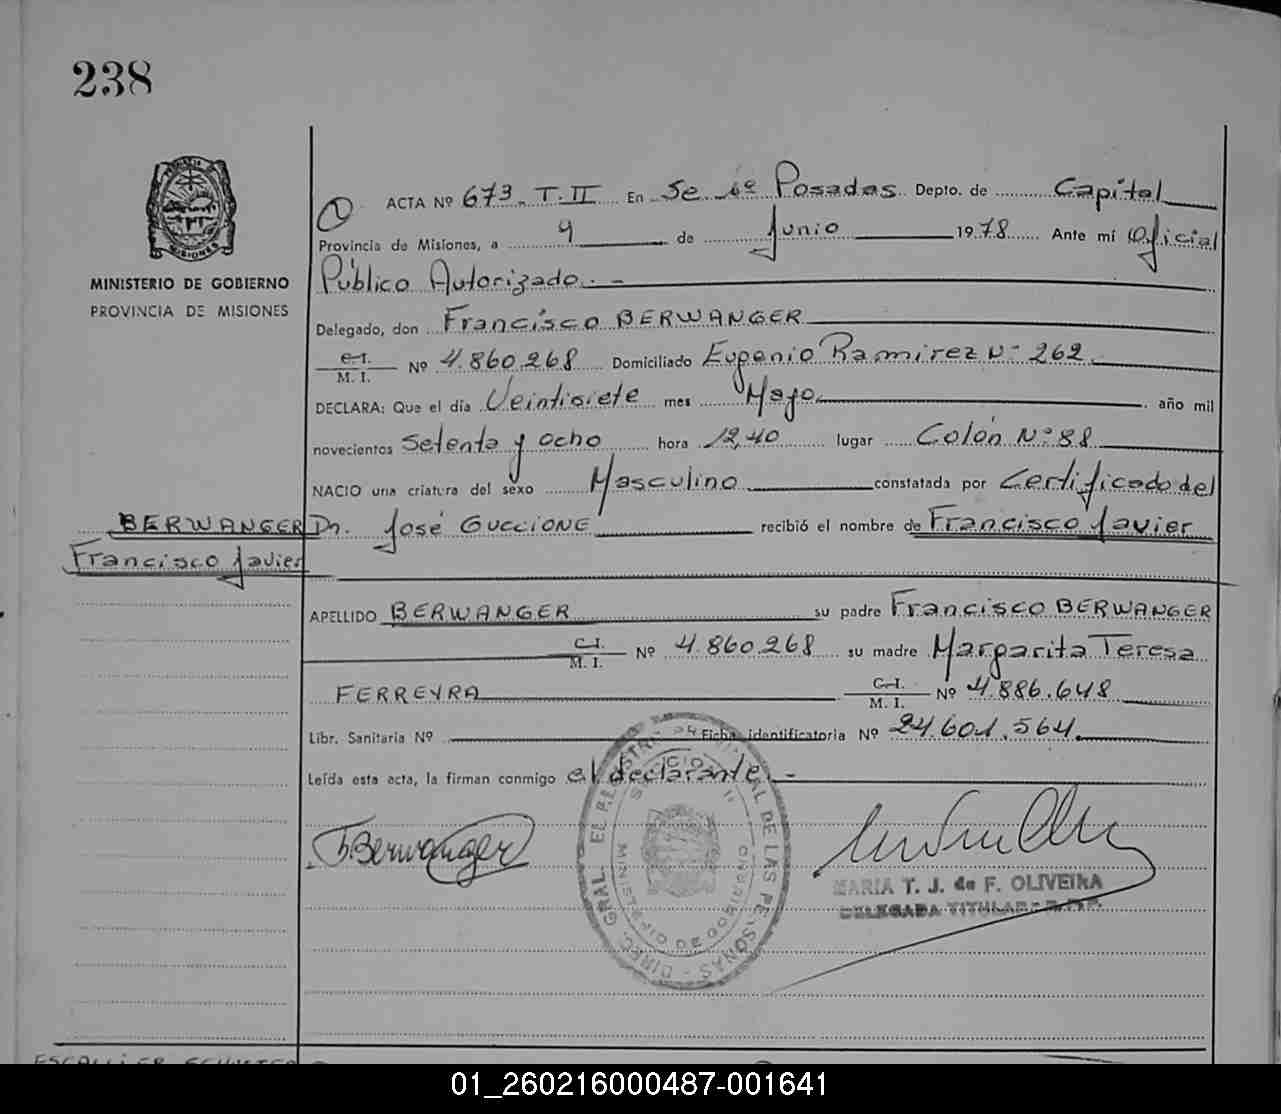 238
MINISTERIO DE GOBIERNO
PROVINCIA DE MISIONES
1 ACTA Nº 673. T. II En Sec 1º Posadas Depto. de Capital
Provincia de Misiones, a 9 de Junio 1978 Ante mí Oficial
Público Autorizado. -
Delegado, don Francisco BERWANGER
C.I. M. I. Nº 4.860.268 Domiciliado Eugenio Ramirez Nº 262
DECLARA: Que el día Veintisiete mes Mayo año mil
novecientos Setenta y ocho hora 12,40 lugar Colón Nº 88
NACIO una criatura del sexo Masculino constatada por Certificado del
BERWANGER Dr. José GUCCIONE recibió el nombre de Francisco Javier
Francisco Javier
APELLIDO BERWANGER su padre Francisco BERWANGER
C.I. M. I. Nº 4.860.268 su madre Margarita Teresa
FERREYRA C.I. M. I. Nº 4.886.648
Libr. Sanitaria Nº Ficha identificatoria Nº 24.601.564.
Leída esta acta, la firman conmigo el declarante. -
Berwanger
MARIA T. J. de F. OLIVEIRA
DELEGADA TITULAR
DIREC. GRAL. EL REGISTRO PROVINCIAL DE LAS PERSONAS
MINISTERIO DE GOBIERNO
01_260216000487-001641